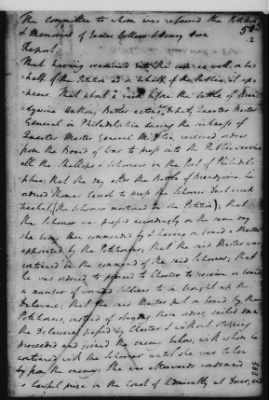 The Committee to whom was referred the Petition
& Memorial of James Craig
Report,
That having examined into the
half of the Petition in behalf of the Public, it ap-
pears, That about a week before the battle of Brand
Anthony Butler acting Deputy Quarter Master
General in Philadelphia during the absence of
Quarter Master General Mifflin, received orders
from the Board of War to press into the Public service
all the Shallops & Schooners in the Port of Philadel-
phia; that the day after the Battle of Brandywine he
ordered Thomas Casdrop to press the Schooner
(the Schooner mentioned in the Petition); that
the Schooner was pressed accordingly on the same day
she being then commanded by & having on board a Master
appointed by the Petitioners; that the said Master was
continued in the command of the said Schooner; that
he was ordered to proceed to Chester to receive on board
a number of wounded Soldiers to be brought up the
Delaware; that the said Master put on board by the
Petitioners, instead of obeying these orders, sailed down
the Delaware, passed by Chester & without stopping
proceeded and joined the enemy below, with whom he
continued with the Schooner until she was taken
by from the enemy: She was afterwards condemned
as lawful prize in the Court of Admiralty at Dover, and